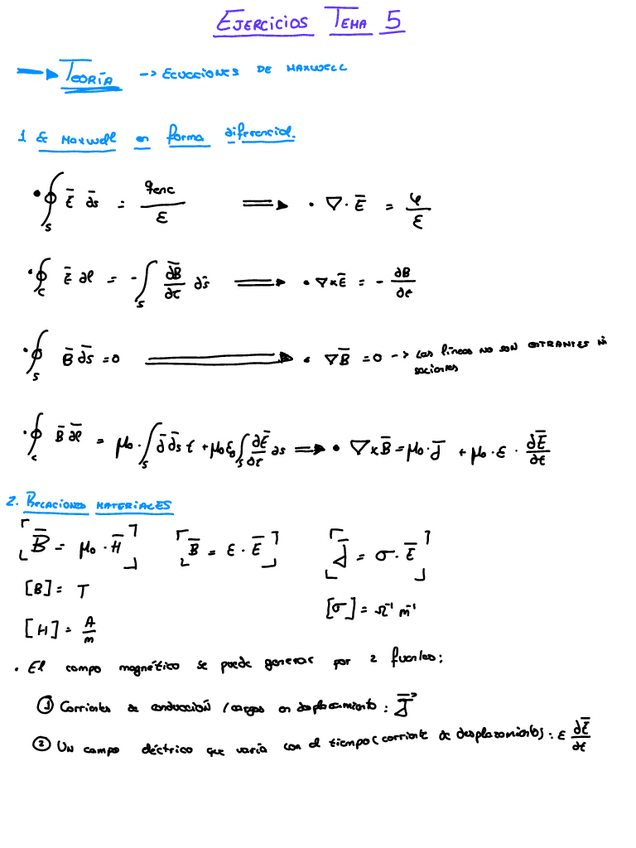 EJERCICIOS TEMA 5
→ TEORÍA → ECUCCIONES DE MAXWELL
1 Ec Maxwell en forma diferencial.
• ∮_S Ē d̄s = q_enc / ε ⟹ • ∇·Ē = φ / ε
• ∮_C Ē ∂ℓ = - ∫_S ∂B̄/∂t ds̄ ⟹ • ∇×Ē = - ∂B/∂t
• ∮_S B̄ d̄s = 0 ⟹ • ∇B̄ = 0 → Las líneas NO SON ENTRANTES NI
salientes
• ∮_C B̄ ∂̄ℓ = μ₀·∫_S J̄ d̄s + μ₀ε₀∫_S ∂Ē/∂t ds ⟹ • ∇×B̄ = μ₀·J̄ + μ₀·ε·∂Ē/∂t
2. RELACIONES MATERIALES
[B̄ = μ₀·H̄] [B̄ = ε·Ē] [J̄ = σ·Ē]
[B] = T [σ] = Ω⁻¹ m⁻¹
[H] = A/m
• El campo magnético se puede generar por 2 fuentes:
① Corrientes de conducción / cargas en desplazamiento: J̄
② UN campo eléctrico que varía con el tiempo (corriente de desplazamientos): ε ∂Ē/∂t